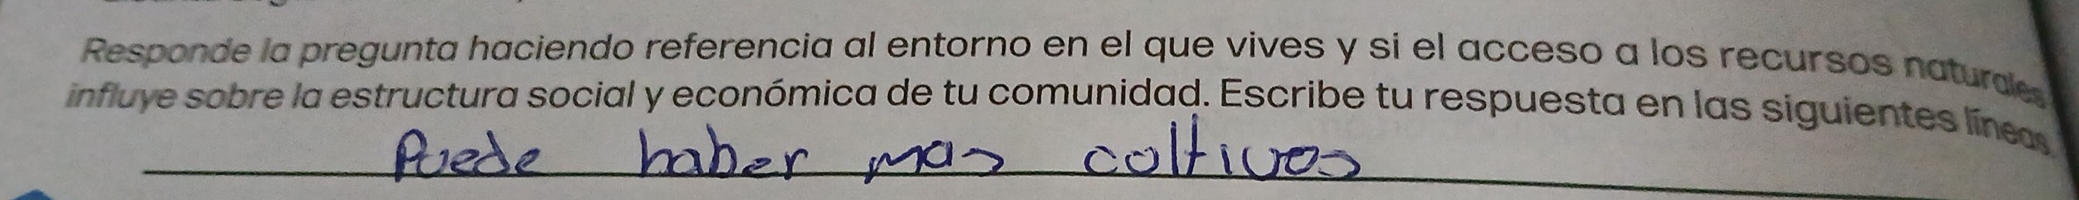 Responde la pregunta haciendo referencia al entorno en el que vives y si el acceso a los recursos naturales
influye sobre la estructura social y económica de tu comunidad. Escribe tu respuesta en las siguientes líneas
Puede haber mas coltivos